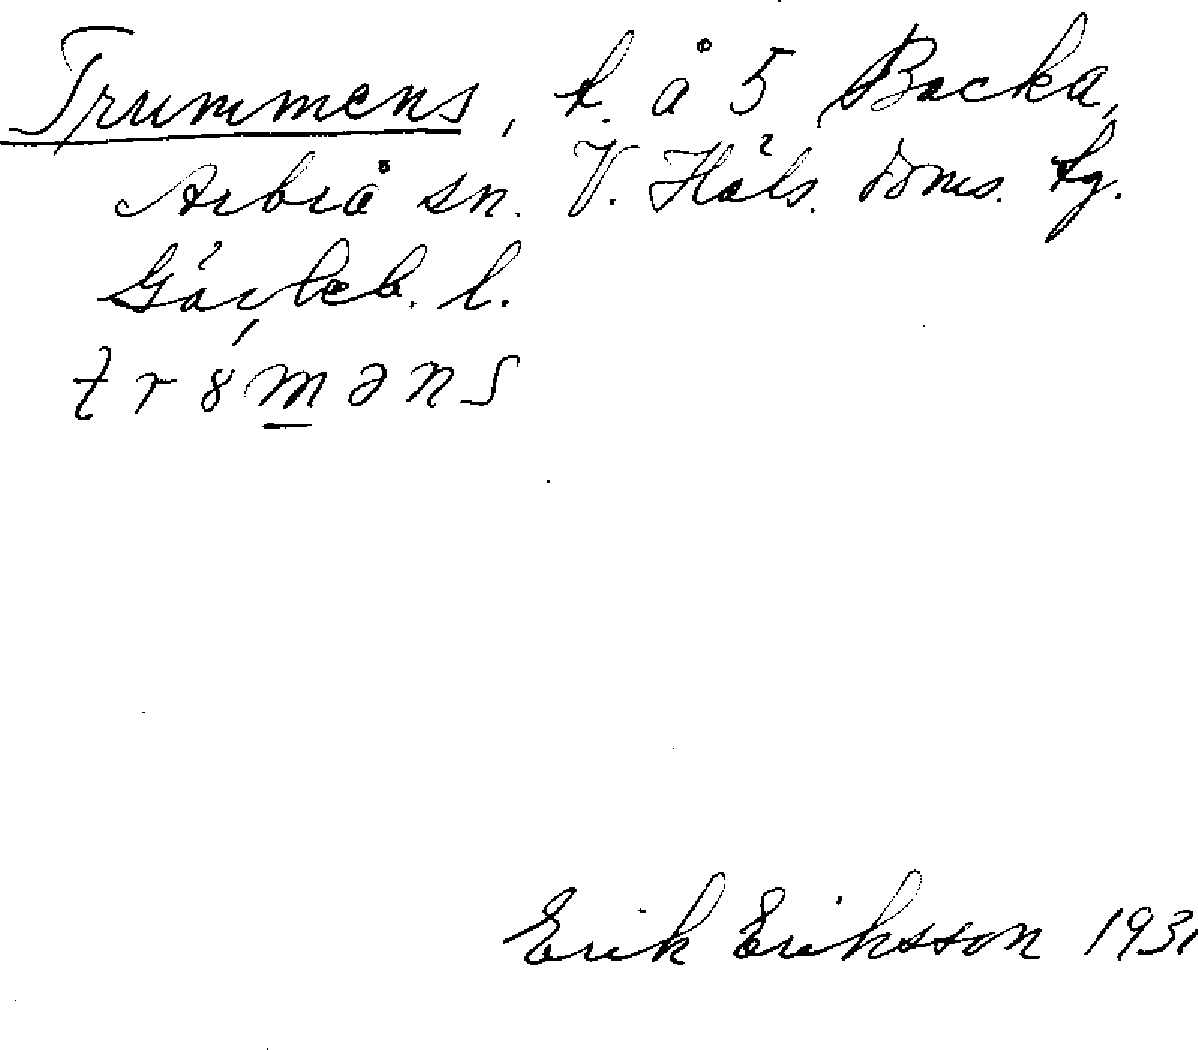 Trummens, t. å 5 Backa,
Arbrå sn. V. Häls. doms. tg.
Gävleb. l.
tr8məns
Erik Eriksson 1931